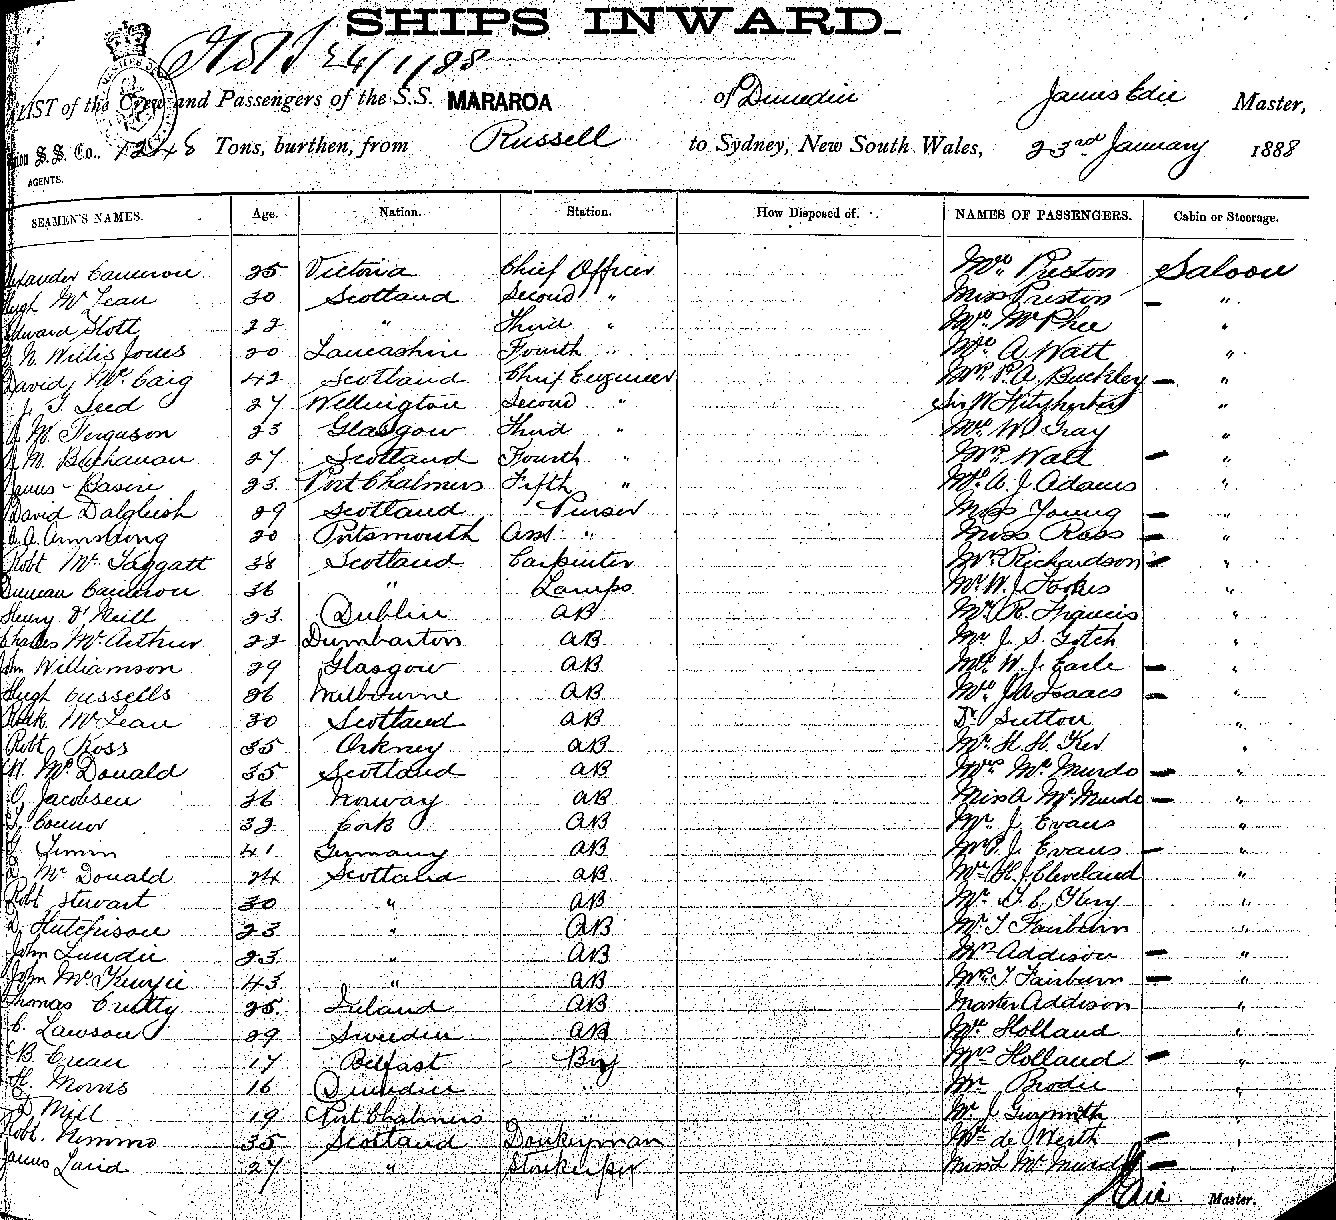 SHIPS INWARD.
24/1/88
LIST of the Crew and Passengers of the S.S. MARAROA of Dunedin James Edie Master,
S. S. Co., 1248 Tons, burthen, from Russell to Sydney, New South Wales, 23rd January 1888
AGENTS.
SEAMEN'S NAMES. Age. Nation. Station. How Disposed of. NAMES OF PASSENGERS. Cabin or Steerage.
Cameron 25 Victoria Chief Officer Preston Saloon
Hugh Mc Lean 30 Scotland Second " Miss Preston "
Edward Stott 22 " Third " Mc Phee "
Willis Jones 20 Lancashire Fourth " A Watt "
David Mc Caig 42 Scotland Chief Engineer Mrs P. A. Buckley "
Leed 27 Wellington Second " Sir W Fitzherbert "
Ferguson 23 Glasgow Third " W Gray "
M. Buchanan 27 Scotland Fourth " Mrs Watt "
James 23 Port Chalmers Fifth " A. J. Adams "
David Dalgleish 29 Scotland Purser Miss Young "
A. Armstrong 20 Portsmouth Asst " Miss Ross "
Robt Mc Taggatt 38 Scotland Carpenter Mrs Richardson "
Duncan Cameron 36 " Lamps Mr W. J. "
Henry O'Neill 23 Dublin AB Mr R. Francis "
Charles Mc Arthur 22 Dumbarton AB Mr J. S. Gotch "
John Williamson 29 Glasgow AB W. J. Earle "
Hugh Cussells 26 Melbourne AB J. A. Isaacs "
Mc Lean 30 Scotland AB Dr Sutton "
Robt Ross 35 Orkney AB Mr H. H. "
Mc Donald 35 Scotland AB Mrs Mc Murdo "
Jacobsen 36 Norway AB Miss A Mc Murdo "
Connor 32 Cork AB Mr J. Evans "
41 Germany AB Mrs J. Evans "
Mc Donald 24 Scotland AB Mr H. J. Cleveland "
Robt Stewart 30 " AB Mr "
Hutchison 23 " AB Mr T Fairburn "
John Lundie 23 " AB Mrs Addison "
John Mc Kenzie 43 " AB Mrs T Fairburn "
Thomas 25 Ireland AB Master Addison "
C. Lawson 29 Sweden AB Mr Holland "
B. 17 Belfast Boy Mrs Holland "
H. Morris 16 Dunedin " Mr Brodie "
Mill 19 Port Chalmers " Mr J "
Robt. Nimmo 35 Scotland Donkeyman de Werth "
James Laird 27 " Storekeeper Miss L Mc Murdo "
Edie Master.